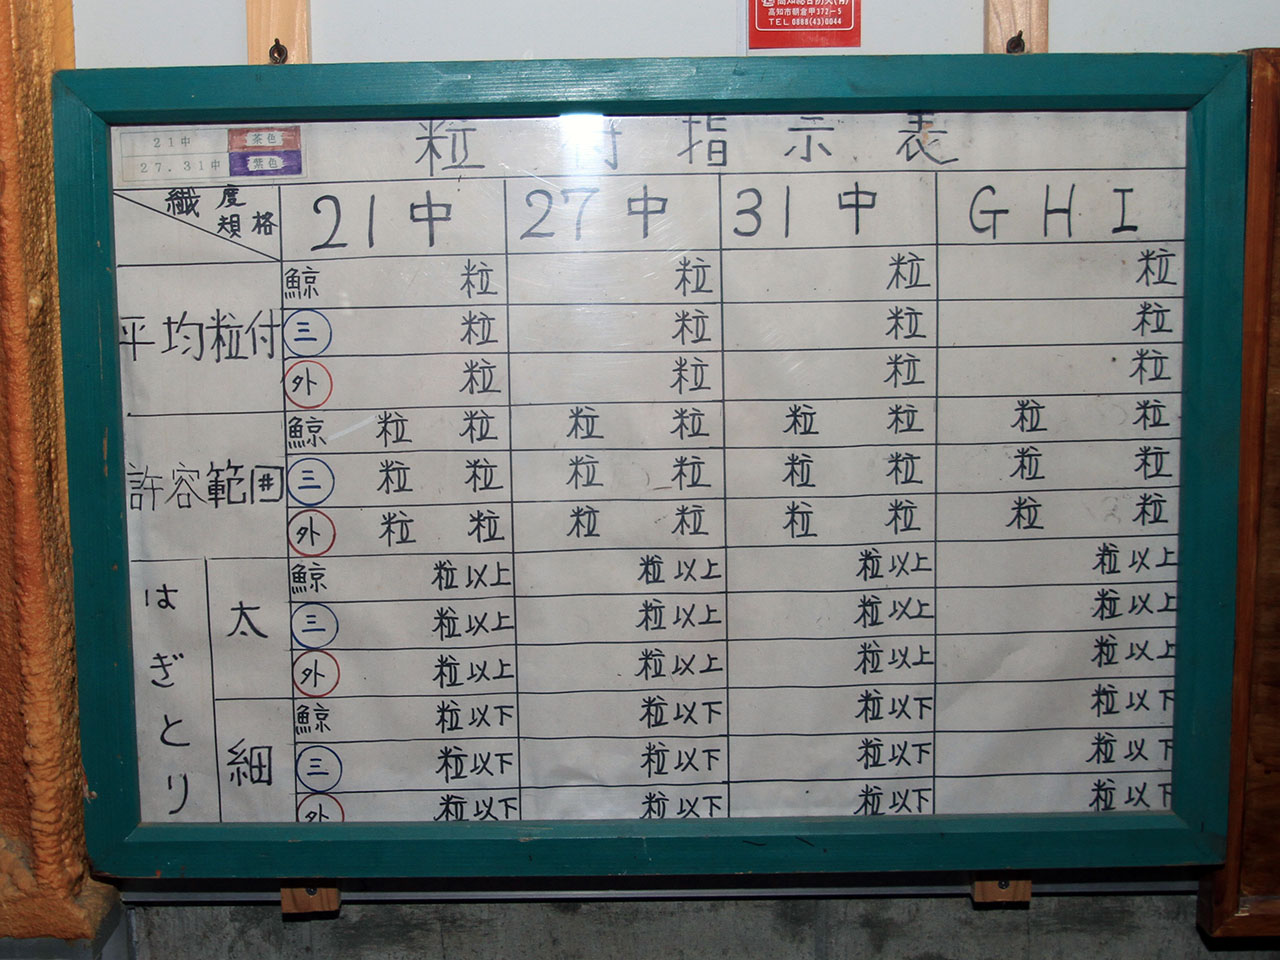 高知市朝倉甲372-5
TEL 0888(43)0044
21中 茶色
27.31中 紫色
粒 付 指 示 表
繊度
規格
21中 27中 31中 GHI
平均粒付
鯨 粒 粒 粒 粒
三 粒 粒 粒 粒
外 粒 粒 粒 粒
許容範囲
鯨 粒 粒 粒 粒 粒 粒 粒 粒
三 粒 粒 粒 粒 粒 粒 粒 粒
外 粒 粒 粒 粒 粒 粒 粒 粒
はぎとり
太
鯨 粒以上 粒以上 粒以上 粒以上
三 粒以上 粒以上 粒以上 粒以上
外 粒以上 粒以上 粒以上 粒以上
細
鯨 粒以下 粒以下 粒以下 粒以下
三 粒以下 粒以下 粒以下 粒以下
外 粒以下 粒以下 粒以下 粒以下